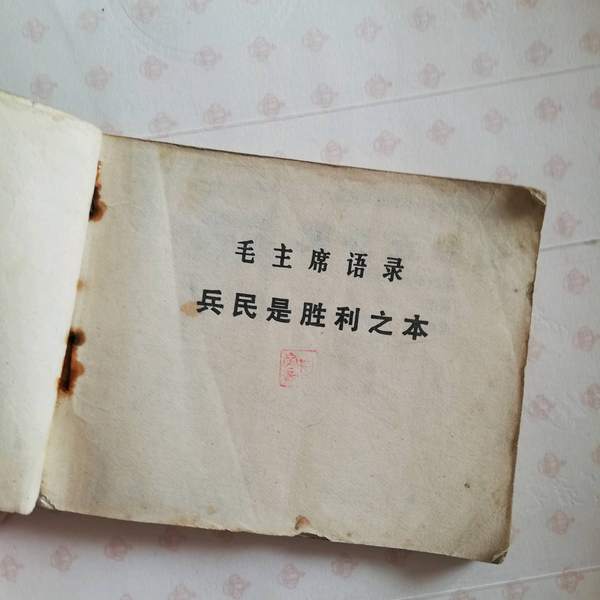 毛主席语录
兵民是胜利之本